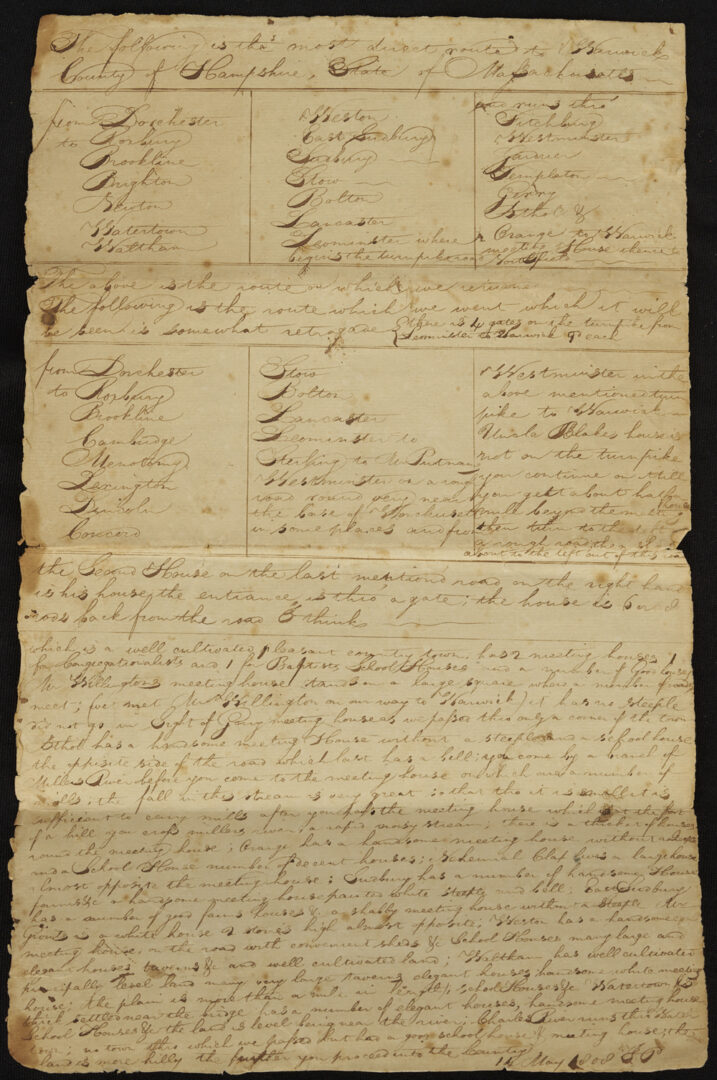 The following is the most direct route to Warwick
County of Hampshire, State of Massachusetts
from Dorchester
to Roxbury
Brookline
Brighton
Newton
Watertown
Waltham
Weston
East Sudbury
Sudbury
Stow
Bolton
Lancaster
Leominster where
begins the turnpike road
and runs thro'
Fitchburg
Westminster
Gardner
Templeton
Gerry
Athol &
Orange to Warwick
meeting House thence to
Northfield
The above is the route on which we returned
The following is the route which we went which it will
be seen is somewhat retrograde
there is 4 gates on the turnpike from
Leominster to Warwick 9 each
from Dorchester
to Roxbury
Brookline
Cambridge
Menotomy
Lexington
Lincoln
Concord
Stow
Bolton
Lancaster
Leominster to
Sterling to Mr Putnam
Westminster on a rough
road round very near
the base of Wachusett
in some places and from
Westminster in the
above mentioned turn
pike to Warwick
Uncle Blakes house is
not on the turnpike
you continue on till
you get about half a
mile beyond the meeting house
then turn to the left
a rough road then
about to the left out of this road
the Second House on the last mention'd road on the right hand
is his house, the entrance is thro' a gate; the house is 6 or 8
rods back from the road I think
which is a well cultivated pleasant country town has 2 meeting houses 1
for Congregationalists and 1 for Baptists School Houses and a number of Good houses
Mr Willingtons meeting house stands on a large square where a number of roads
meet; (we met Mr Willington on our way to Warwick) it has no steeple
we did not go in Sight of Gerry meeting house as we pass'd thro only a corner of the town
Athol has a handsome meeting House without a steeple and a school house
the opposite side of the road which last has a bell; you come by a branch of
Millers River before you come to the meeting house on which are a number of
mills; the fall in the stream is very great; so that tho it is small it is
sufficient to carry mills after you pass the meeting house which at the foot
of a hill you cross millers river a rapid noisy stream; there is a thicker of houses
round the meeting house; Orange has a handsome meeting house without a steeple
and a School House number of decent houses; Nehemiah Clap lives in a large house
almost opposite the meeting house; Sudbury has a number of handsome Houses
farms & a handsome meeting house painted white steeple and bell; East Sudbury
has a number of good farms houses & a shabby meeting house without a Steeple Mr
is a white house 2 stories high almost opposite; Weston has a handsome
meeting house on the road with convenient sheds & School Houses many large and
elegant houses taverns & and well cultivated land; Waltham has well cultivated
principally level land many very large taverns elegant houses handsome white meeting
house; the plain is more than a mile in length, school Houses & Watertown is
thick settled near the bridge has a number of elegant houses, handsome meeting house
School Houses & the land is level being near the river, Charles River runs thro this
town; no town thro which we pass'd but has a good school house & meeting house; the
land is more hilly the further you proceed into the Country
14 May 1808